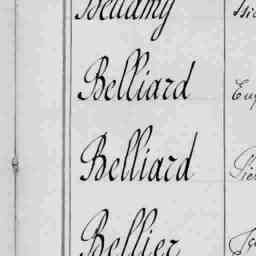 Bellamy
Belliard
Belliard
Bellier